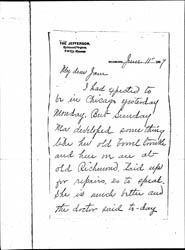 THE JEFFERSON,
Richmond, Virginia.
June 11th
My dear Jam
I had expected to
be in Chicago yesterday
Monday. But Sunday
Mar developed something
like her old bowel trouble
and here we are at
old Richmond, laid up
for repairs, so to speak.
She is much better and
the doctor said to-day